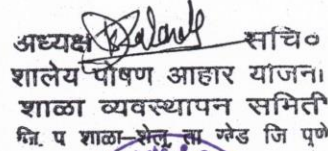 अध्यक्ष सचि०
शालेय पोषण आहार योजना
शाळा व्यवस्थापन समिती
जि. प शाळा-शेलू, ता खेड जि पुणे